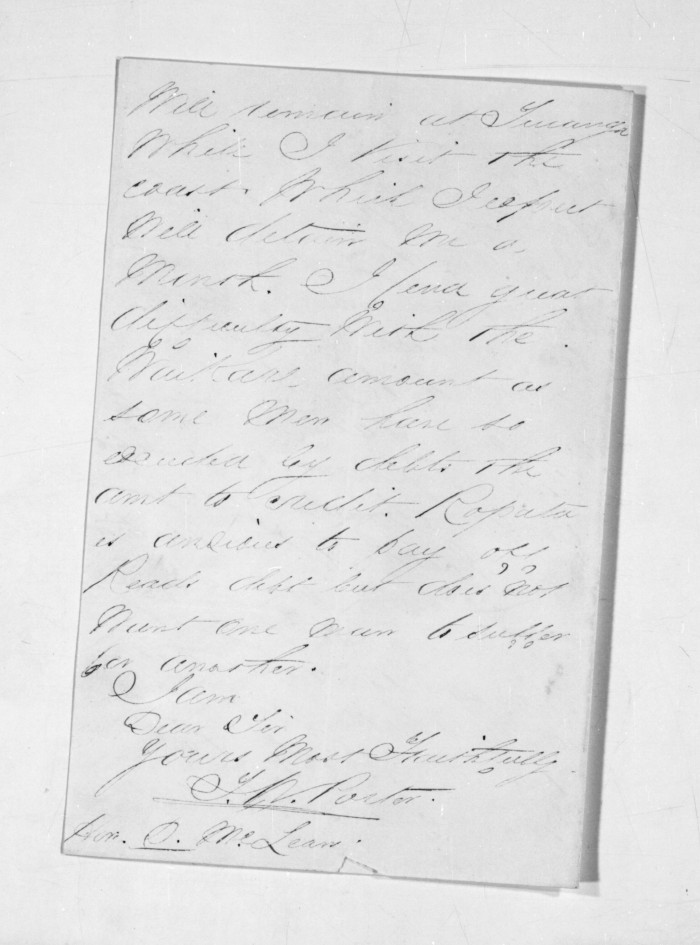 Will remain at Turanga
While I Visit the
coast. Which I expect
Will detain me a
Month. I find great
difficulty With the
Waikare amount as
some Men have so
exceeded by debts the
amt to credit. Ropata
is anxious to pay off
Reads debt but does not
Want one man to suffer
for another.
I am
Dear Sir
Yours Most Faithfully
T. W. Porter.
Hon. D. McLean.